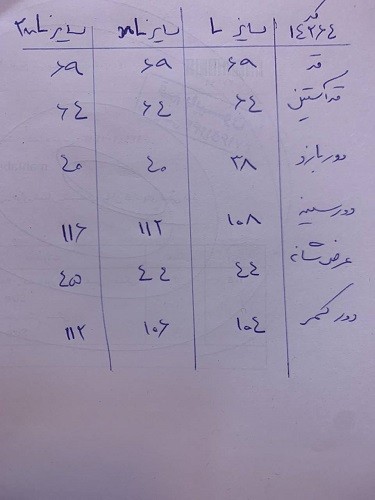 کد
۱۴۲۶۴ سایز L سایز XL سایز ۲XL
قد ۶۹ ۶۹ ۶۹
قد آستین ۶۴ ۶۴ ۶۴
دور بازو ۳۸ ۴۰ ۴۰
دور سینه ۱۰۸ ۱۱۲ ۱۱۶
عرض شانه ۴۴ ۴۴ ۴۵
دور کمر ۱۰۴ ۱۰۶ ۱۱۲